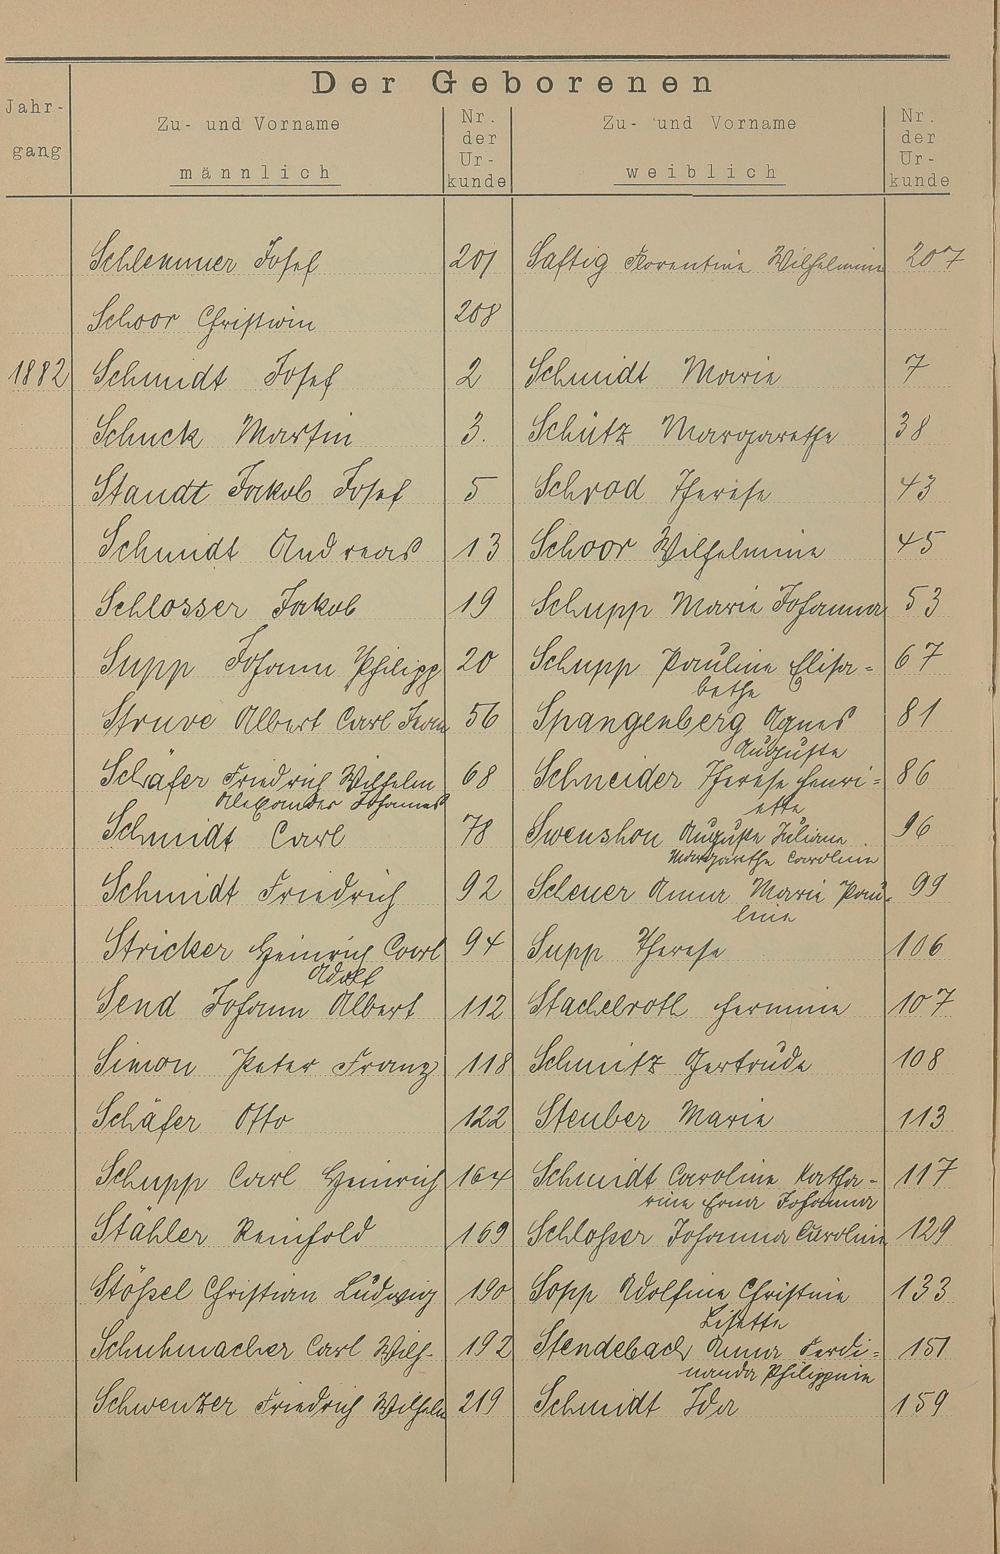 Der Geborenen
Jahr-
gang
Zu- und Vorname
männlich
Nr.
der
Ur-
kunde
Zu- und Vorname
weiblich
Nr.
der
Ur-
kunde
Schlemmer Josef 201 Saftig Florentine Wilhelmine 207
Schoor Christian 208
1882 Schmidt Josef 2 Schmidt Marie 7
Schuck Martin 3. Schütz Margarethe 38
Staudt Jakob Josef 5 Schrod Therese 43
Schmidt Andreas 13 Schoor Wilhelmine 45
Schlosser Jakob 19 Schupp Marie Johanna 53
Supp Johann Philipp 20 Schupp Pauline Elisa= 67
bethe
Struve Albert Carl Jean 56 Spangenberg Agnes 81
Auguste
Schäfer Friedrich Wilhelm 68 Schneider Therese Henri= 86
Alexander Johannes
ette
Schmidt Carl 78 Swenshon Auguste Juliane 96
Margarethe Caroline
Schmidt Friedrich 92 Scheuer Anna Marie Pau- 99
line
Stricker Heinrich Carl 94 Supp Therese 106
Adolf
Send Johann Albert 112 Stachelroth Hermine 107
Simon Peter Franz 118 Schmitz Gertrude 108
Schäfer Otto 122 Steuber Marie 113
Schupp Carl Heinrich 164 Schmidt Caroline Katha- 117
rine Erna Johanna
Stähler Reinhold 169 Schloßer Johanna Caroline 129
Stößel Christian Ludwig 190 Sopp Adolfine Christine 133
Lisette
Schuhmacher Carl Wilh. 192 Stendebach Anna Ferdi= 151
nanda Philippine
Schwenzer Friedrich Wilhelm 219 Schmidt Ida 159